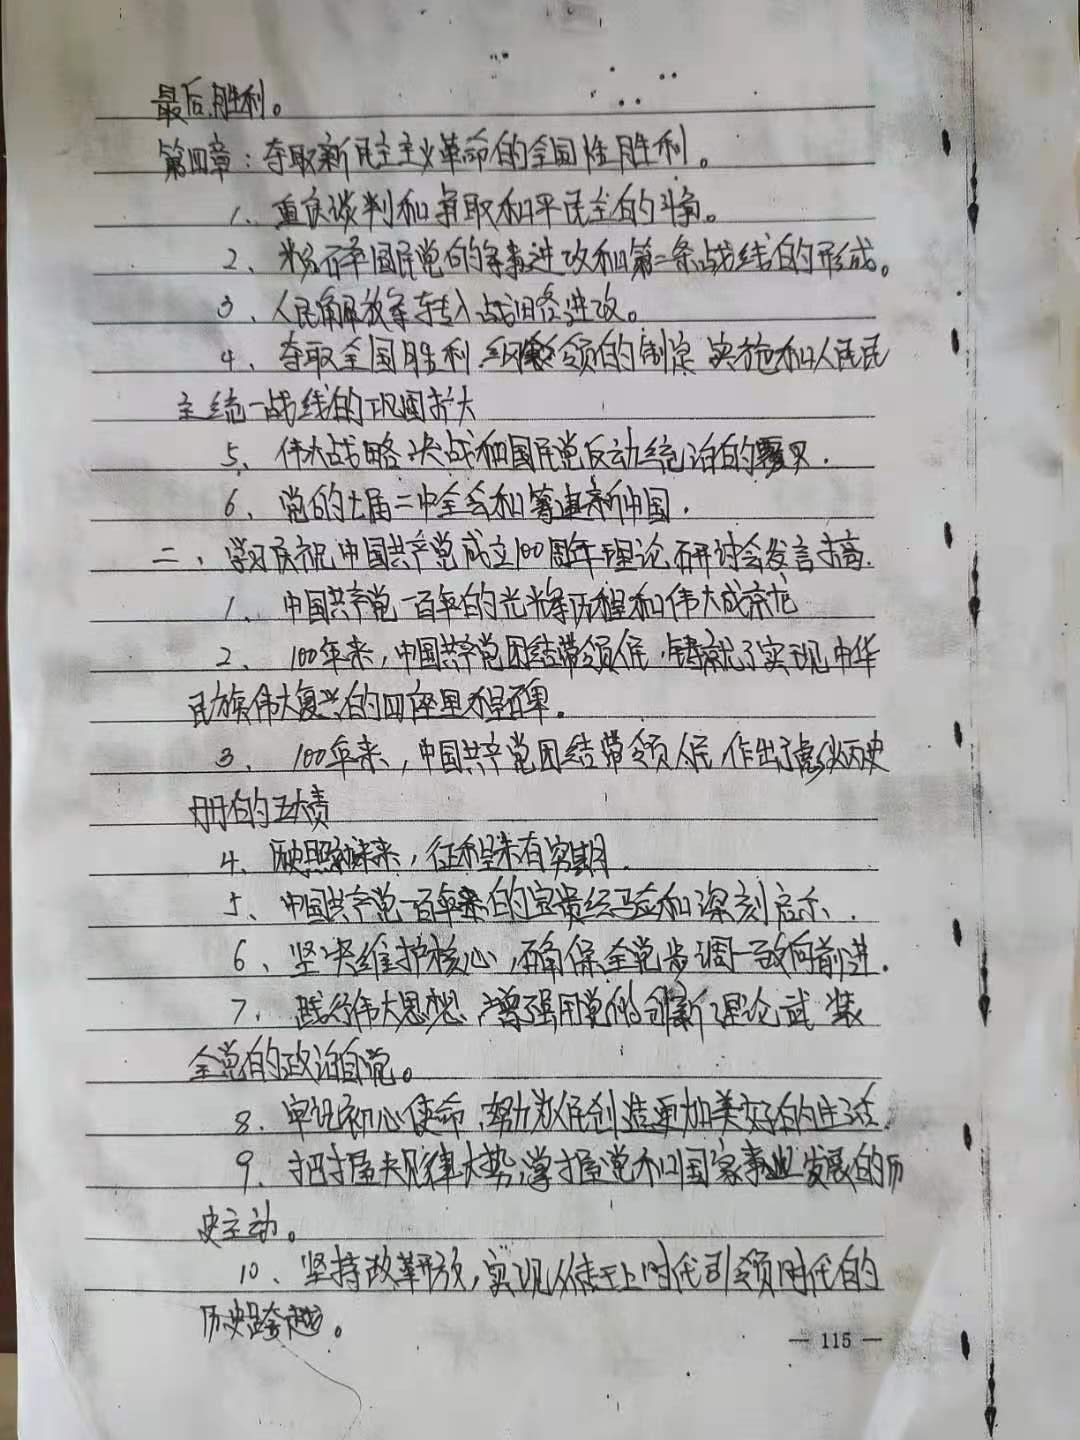 最后胜利。
第四章:夺取新民主主义革命的全国性胜利。
1、重庆谈判和争取和平民主的斗争。
2、粉碎国民党的军事进攻和第二条战线的形成。
3、人民解放军转入战略进攻。
4、夺取全国胜利纲领的制定实施和人民民
主统一战线的巩固扩大
5、伟大战略决战和国民党反动统治的覆灭.
6、党的七届二中全会和筹建新中国.
二、学习庆祝中国共产党成立100周年理论研讨会发言摘.
1、中国共产党一百年的光辉历程和伟大成就
2、100年来,中国共产党团结带领人民,铸就了实现中华
民族伟大复兴的四座里程碑。
3、100年来,中国共产党团结带领人民,作出了彪炳史
册的五大贡
4、历史照亮未来,征程未有穷期.
5、中国共产党一百年来的宝贵经验和深刻启示.
6、坚决维护核心,确保全党步调一致向前进.
7、践行伟大思想,增强用党的创新理论武装
全党的政治自觉。
8、牢记初心使命,努力为人民创造更加美好的生活.
9、把握大规律大势,掌握党和国家事业发展的历
史主动。
10、坚持改革开放,实现从赶上时代到引领时代的
历史跨越。
— 115 —